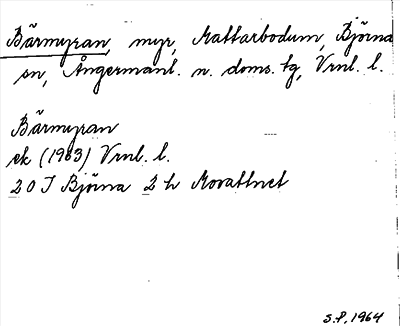 Bärmyran, myr, Mattarbodum, Björna
sn, Ångermanl. n. doms. tg, Vrnl. l.
Bärmyran
ek (1963) Vrnl. l.
20 J Björna 2 h Movattnet
S.P. 1964